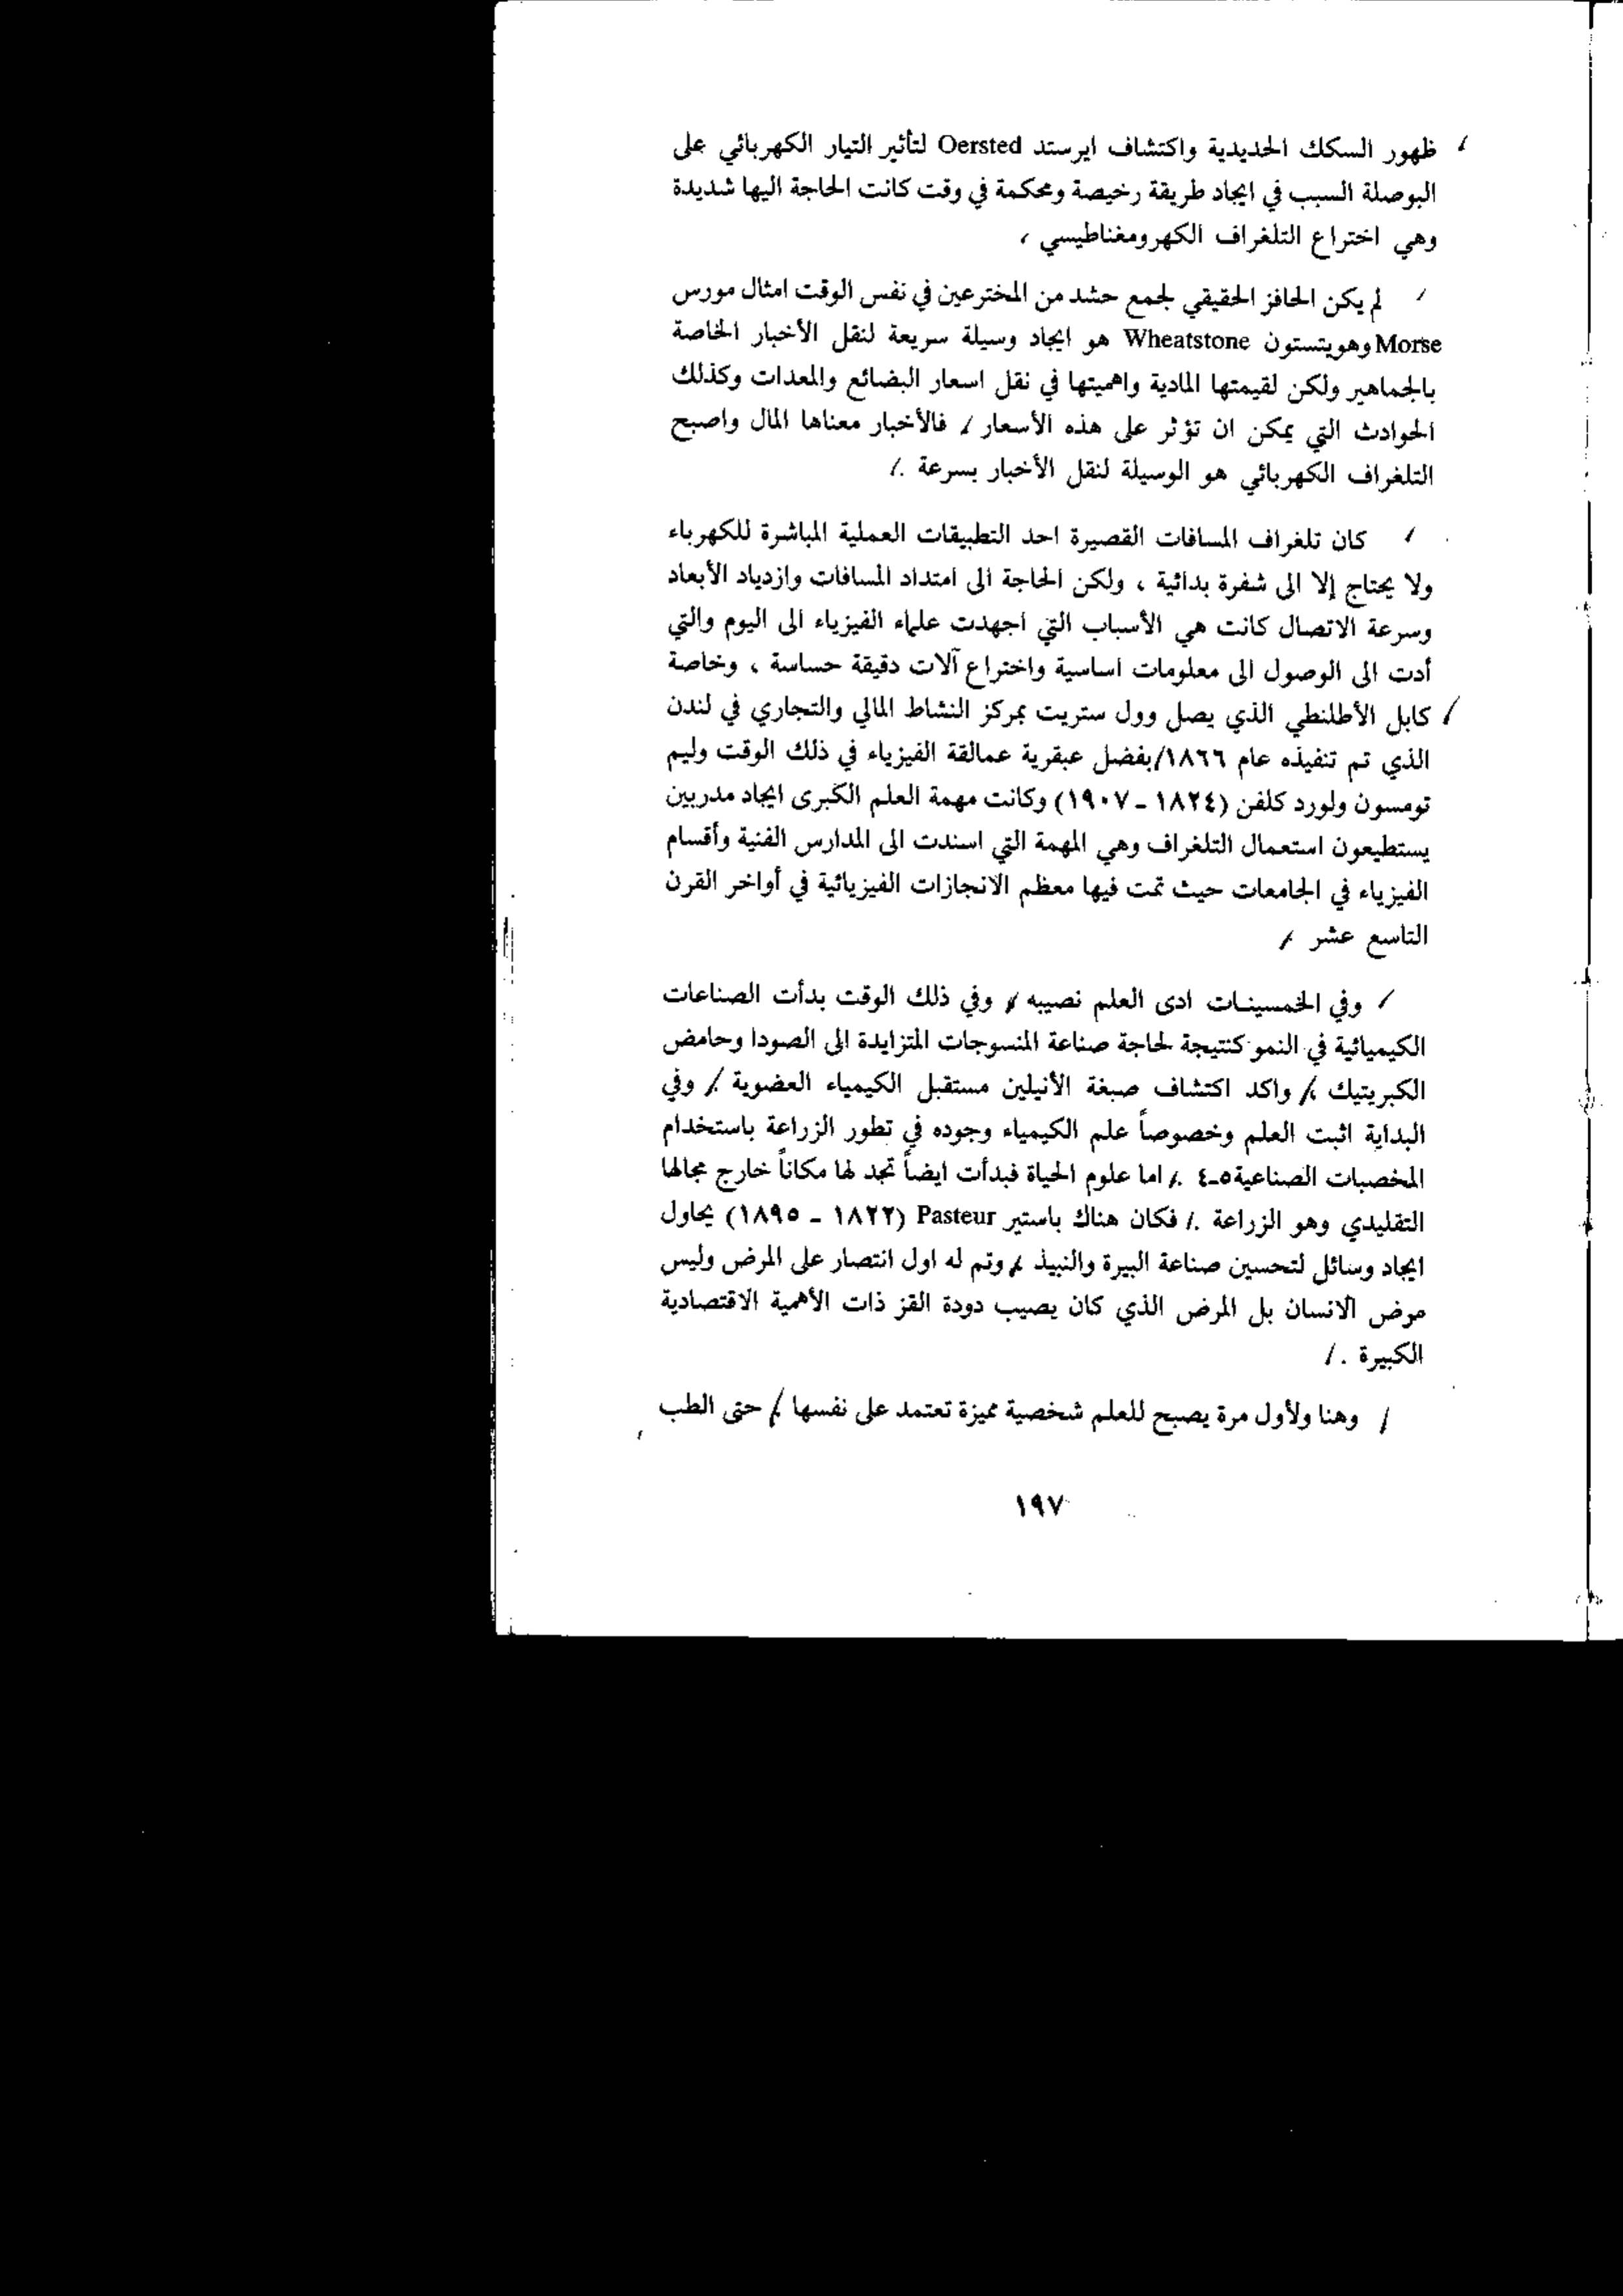 ظهور السكك الحديدية واكتشاف ايرستد Oersted لتأثير التيار الكهربائي على
البوصلة السبب في ايجاد طريقة رخيصة ومحكمة في وقت كانت الحاجة اليها شديدة
وهي اختراع التلغراف الكهرومغناطيسي ،
لم يكن الحافز الحقيقي لجمع حشد من المخترعين في نفس الوقت امثال مورس
Morse وهويتستون Wheatstone هو ايجاد وسيلة سريعة لنقل الأخبار الخاصة
بالجماهير ولكن لقيمتها المادية واهميتها في نقل اسعار البضائع والمعدات وكذلك
الحوادث التي يمكن ان تؤثر على هذه الأسعار / فالأخبار معناها المال واصبح
التلغراف الكهربائي هو الوسيلة لنقل الأخبار بسرعة ./
كان تلغراف المسافات القصيرة احد التطبيقات العملية المباشرة للكهرباء
ولا يحتاج إلا الى شفرة بدائية ، ولكن الحاجة الى امتداد المسافات وازدياد الأبعاد
وسرعة الاتصال كانت هي الأسباب التي اجهدت علماء الفيزياء الى اليوم والتي
أدت الى الوصول الى معلومات اساسية واختراع آلات دقيقة حساسة ، وخاصة
/ كابل الأطلنطي الذي يصل وول ستريت بمركز النشاط المالي والتجاري في لندن
الذي تم تنفيذه عام ١٨٦٦/بفضل عبقرية عمالقة الفيزياء في ذلك الوقت وليم
تومسون ولورد كلفن (١٨٢٤ - ١٩٠٧) وكانت مهمة العلم الكبرى ايجاد مدربين
يستطيعون استعمال التلغراف وهي المهمة التي اسندت الى المدارس الفنية وأقسام
الفيزياء في الجامعات حيث تمت فيها معظم الانجازات الفيزيائية في أواخر القرن
التاسع عشر /
/ وفي الخمسينات ادى العلم نصيبه / وفي ذلك الوقت بدأت الصناعات
الكيميائية في النمو كنتيجة لحاجة صناعة المنسوجات المتزايدة الى الصودا وحامض
الكبريتيك / واكد اكتشاف صبغة الأنيلين مستقبل الكيمياء العضوية ./ وفي
البداية اثبت العلم وخصوصاً علم الكيمياء وجوده في تطور الزراعة باستخدام
المخصبات الصناعية٥-٤ ./ اما علوم الحياة فبدأت ايضاً تجد لها مكاناً خارج مجالها
التقليدي وهو الزراعة ./ فكان هناك باستير Pasteur (١٨٢٢ - ١٨٩٥) يحاول
ايجاد وسائل لتحسين صناعة البيرة والنبيذ / وتم له اول انتصار على المرض وليس
مرض الانسان بل المرض الذي كان يصيب دودة القز ذات الأهمية الاقتصادية
الكبيرة ./
/ وهنا ولأول مرة يصبح للعلم شخصية مميزة تعتمد على نفسها / حتى الطب
١٩٧